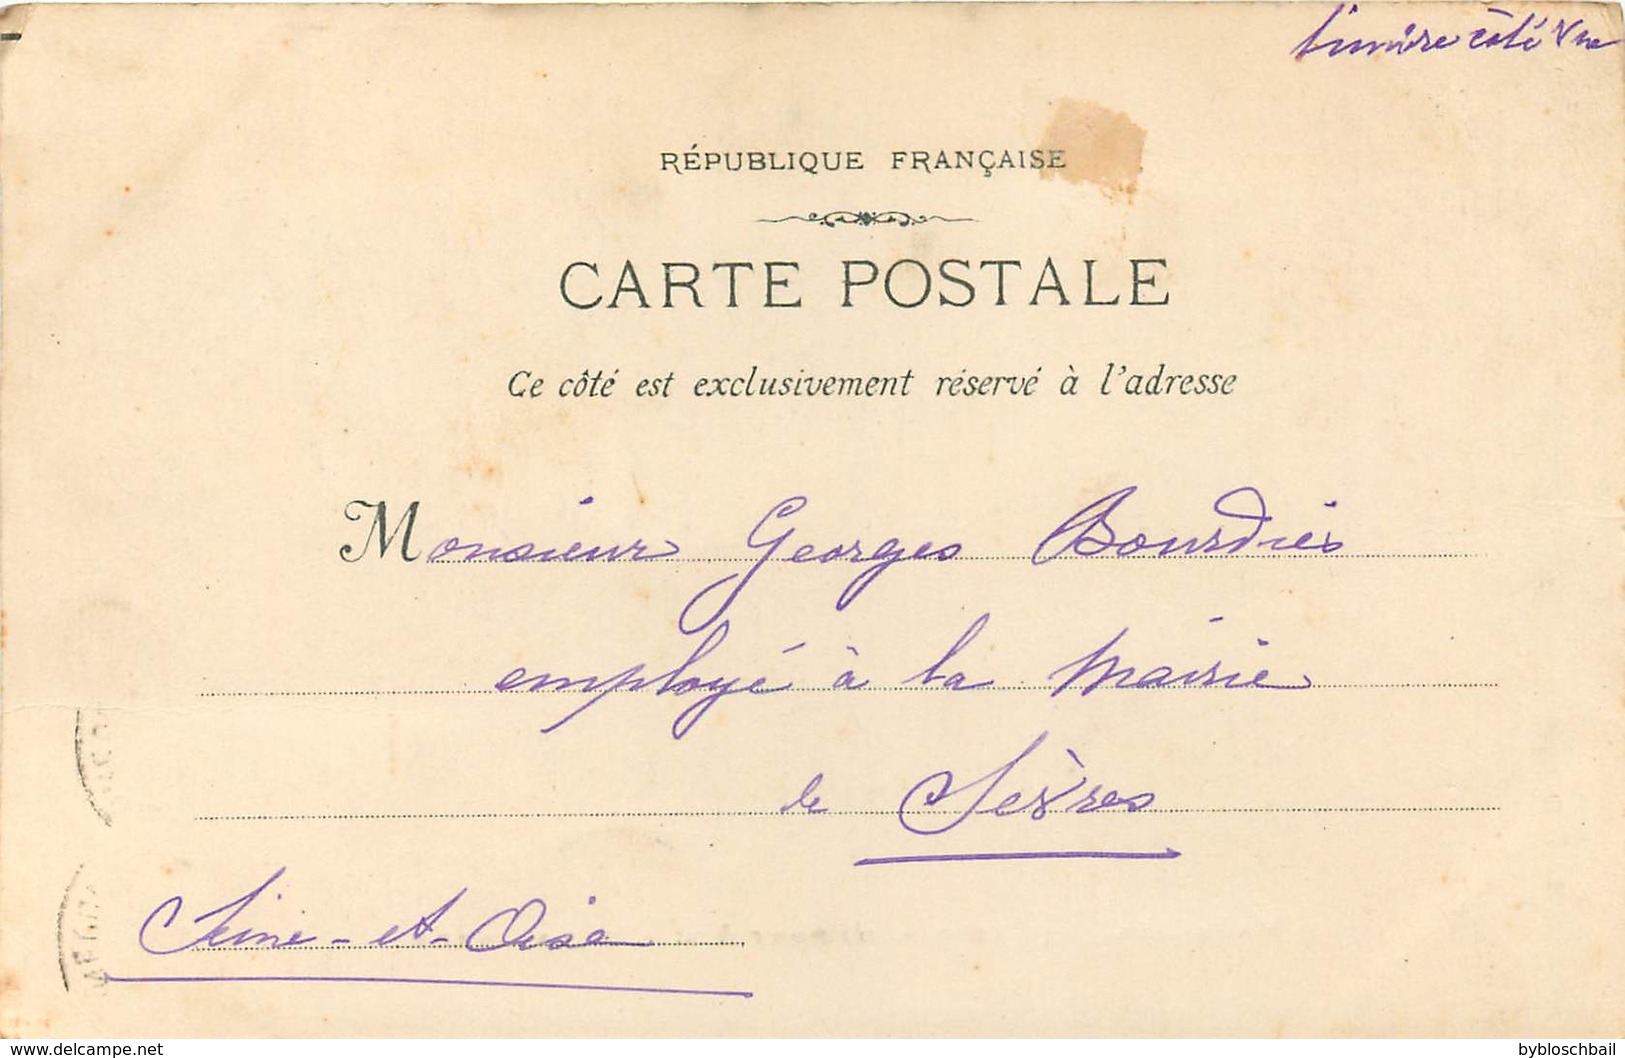 timbre côté vue
RÉPUBLIQUE FRANÇAISE
CARTE POSTALE
Ce côté est exclusivement réservé à l'adresse
Monsieur Georges Bourdiés
employé à la Mairie
de Sèvres
Seine-et-Oise
www.delcampe.net
bybloschbail